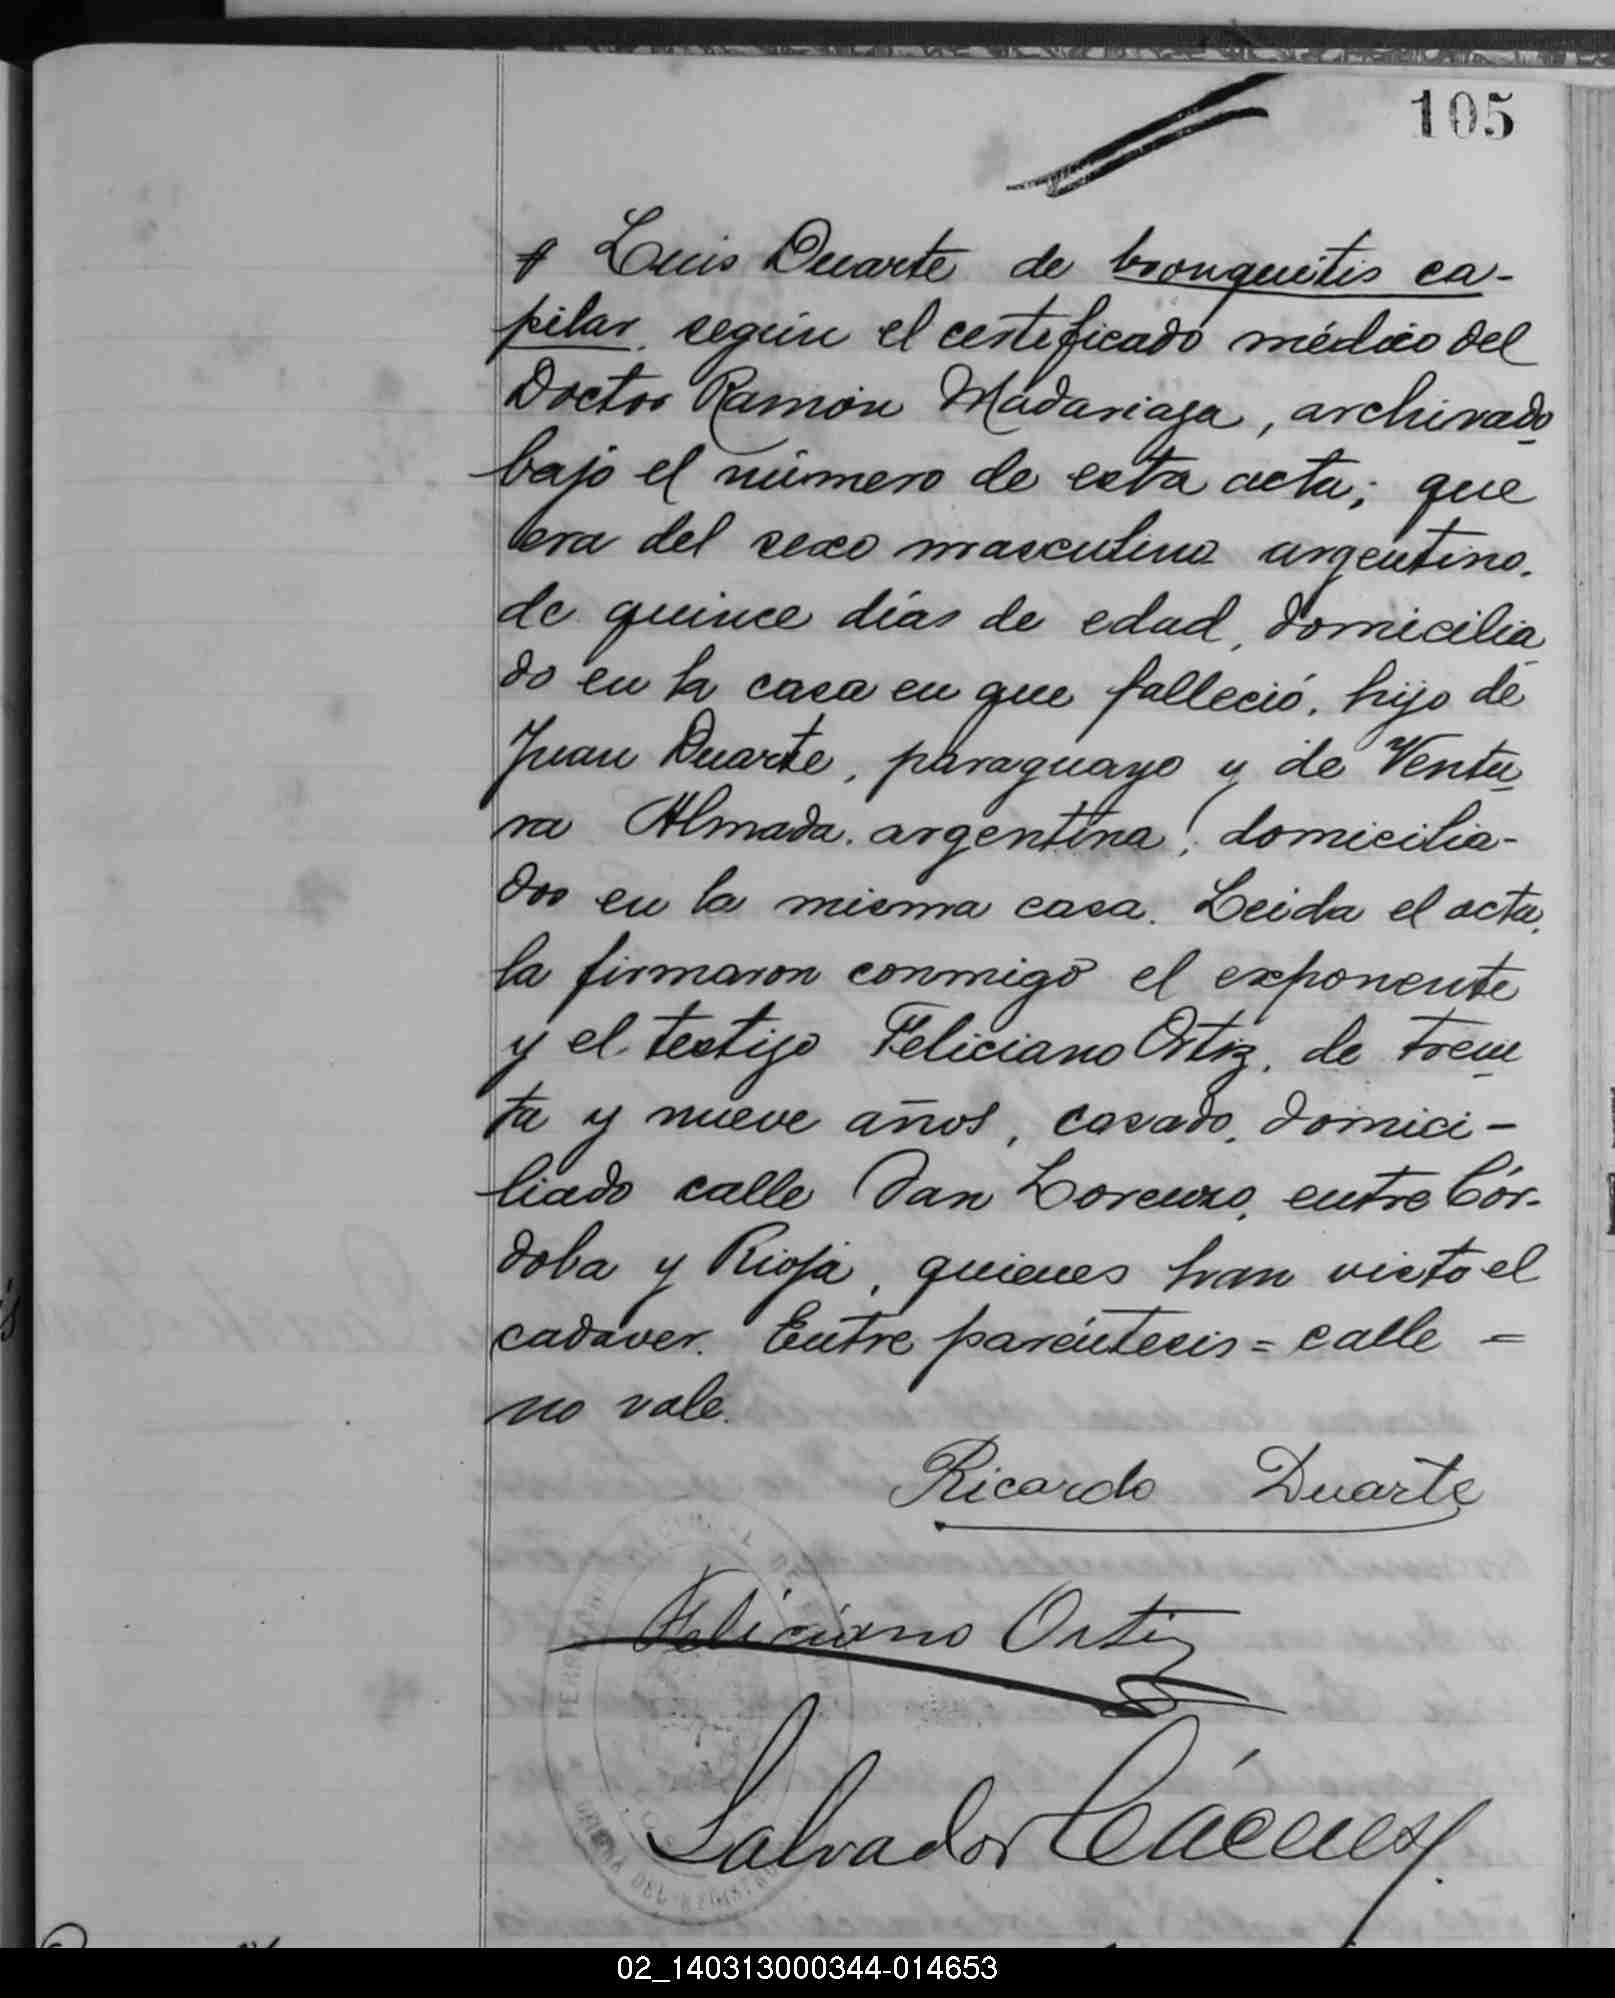 105
Luis Duarte de bronquitis ca-
pilar, según el certificado médico del
Doctor Ramón Madariaga, archivado
bajo el número de esta acta; que
era del sexo masculino argentino,
de quince días de edad, domicilia
do en la casa en que falleció, hijo de
Juan Duarte, paraguayo y de Ventu
ra Almada, argentina, domicilia-
dos en la misma casa. Leida el acta,
la firmaron conmigo el exponente
y el testigo Feliciano Ortiz, de trein
ta y nueve años, casado, domici-
liado calle San Lorenzo, entre Cór-
doba y Rioja, quienes han visto el
cadaver. Entre paréntesis = calle =
no vale.
Ricardo Duarte
Feliciano Ortiz
Salvador
02_140313000344-014653